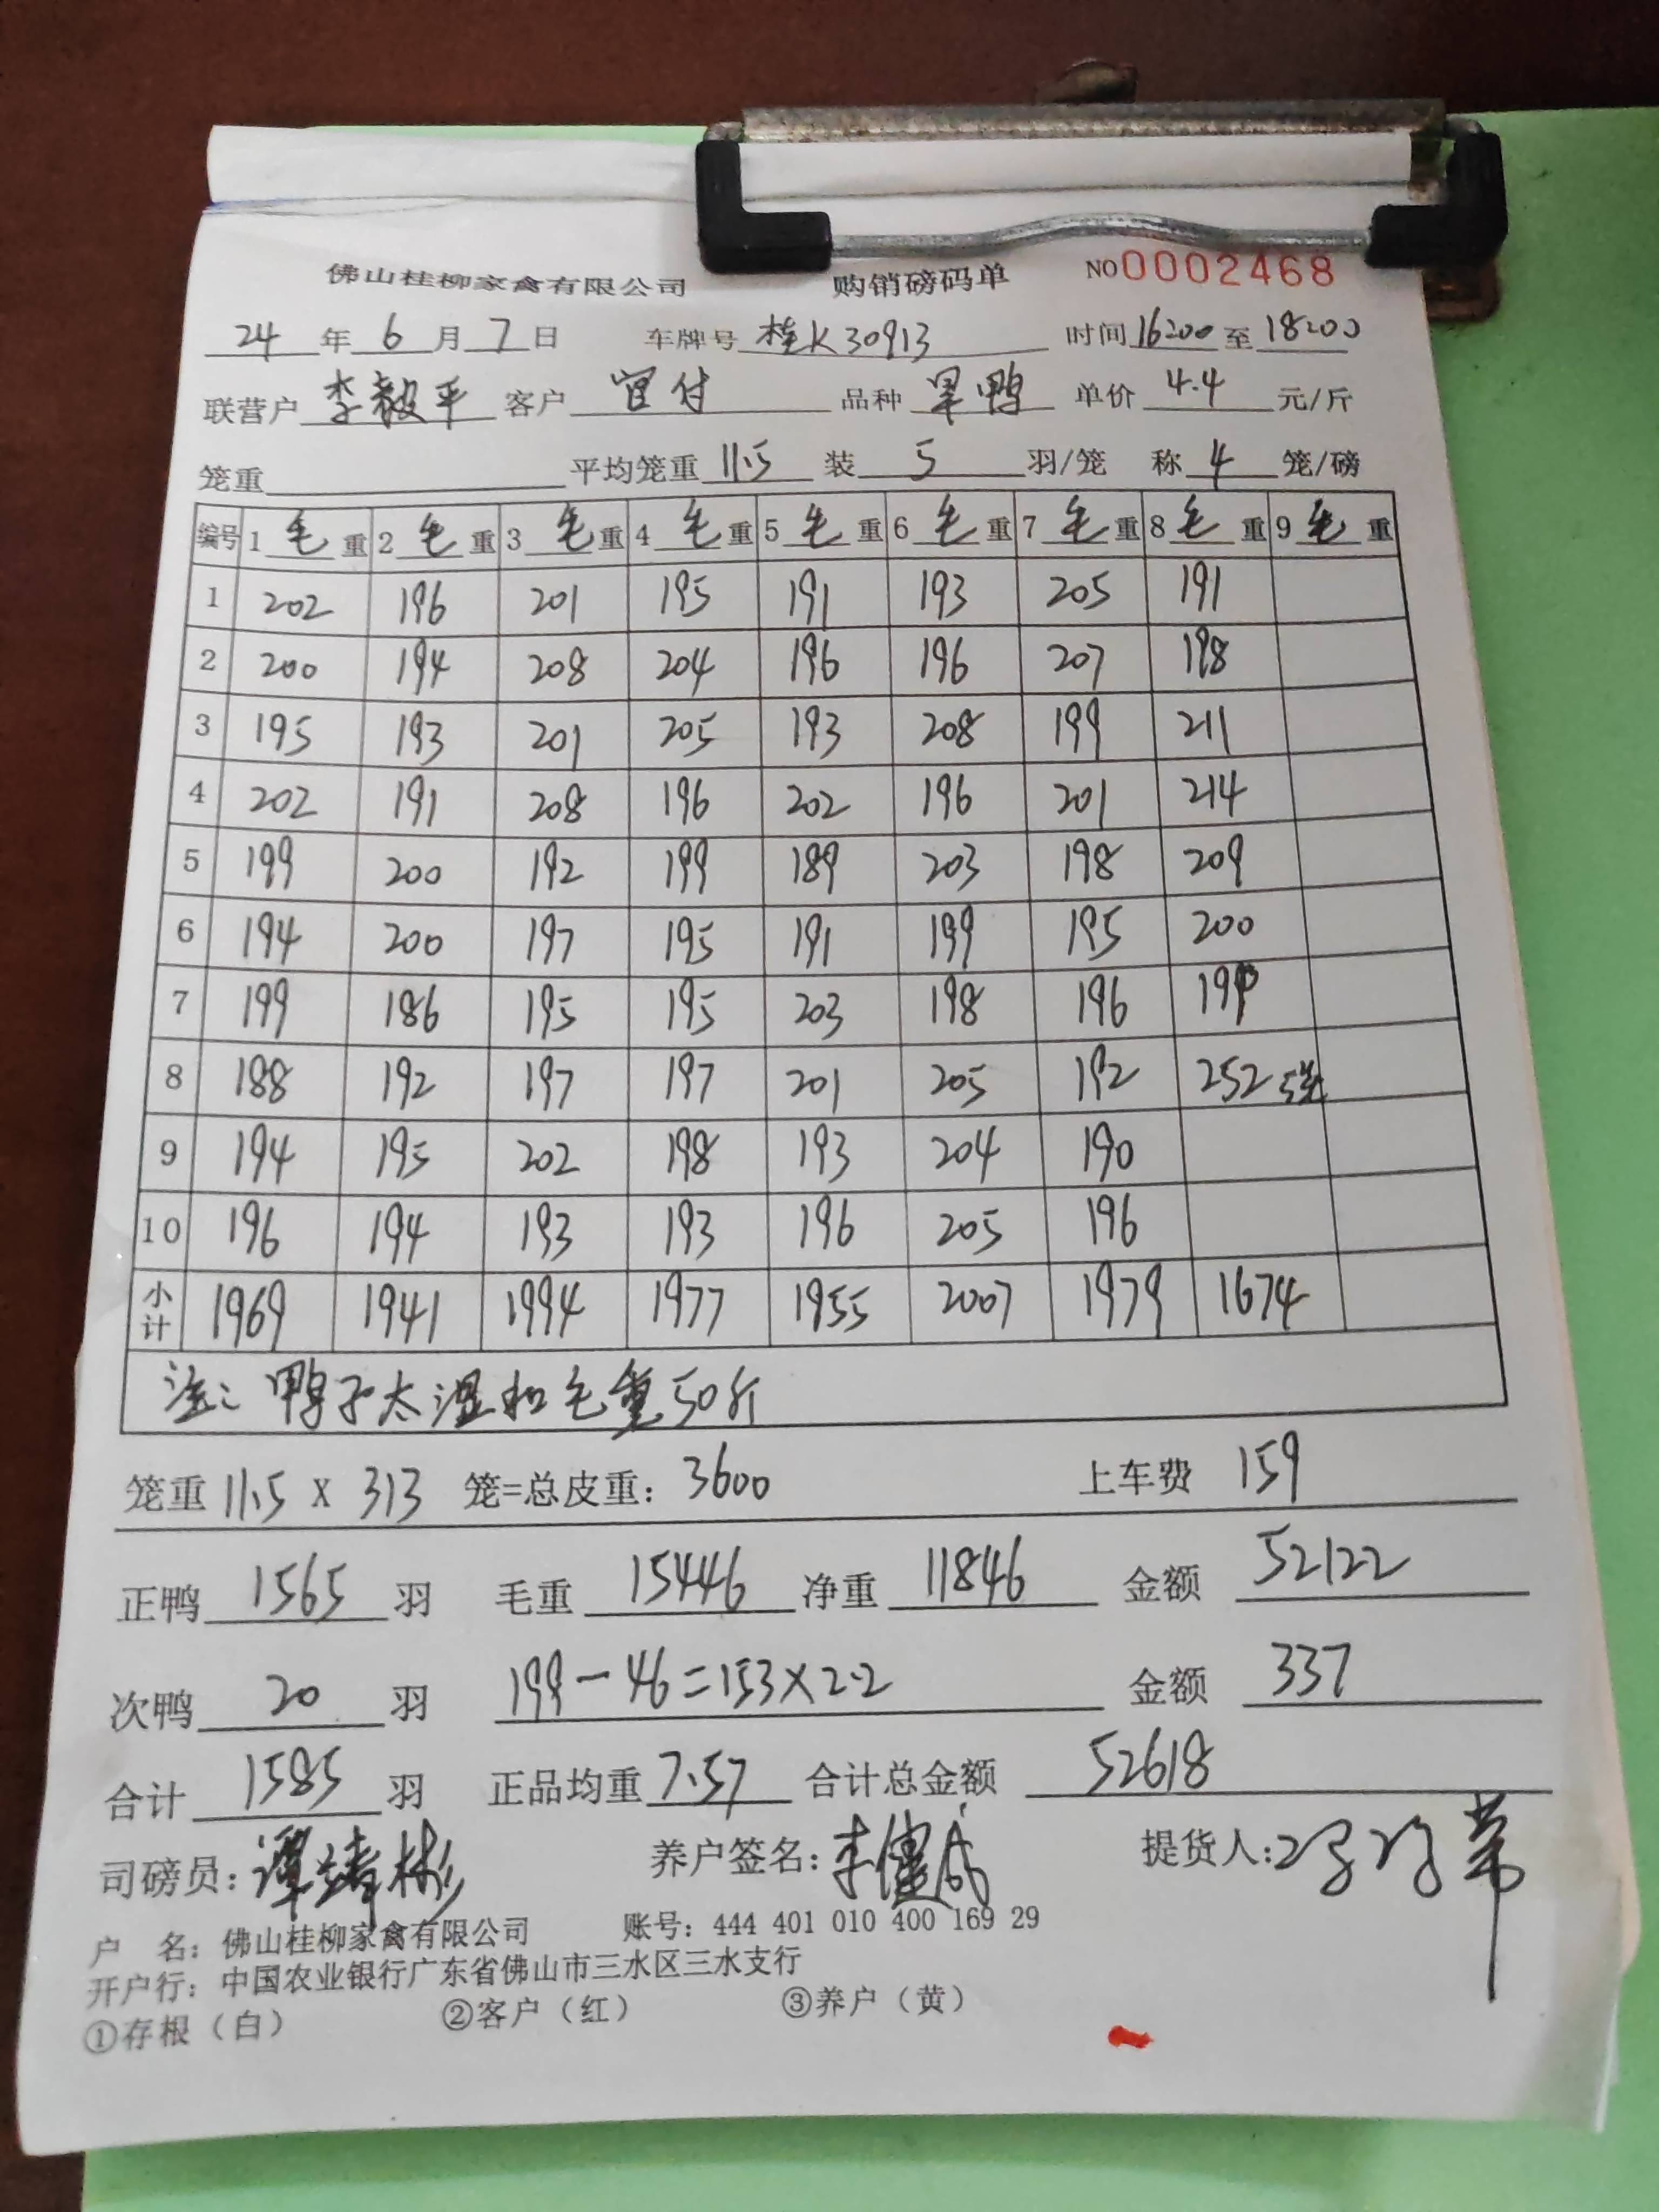 佛山桂柳家禽有限公司 购销磅码单 NO0002468
24 年 6 月 7 日 车牌号 桂K30913 时间 16:00 至 18:00
联营户 李毅平 客户 宜付 品种 黑鸭 单价 4.4 元/斤
笼重 平均笼重 11.5 装 5 羽/笼 称 4 笼/磅
编号 1 毛 重 2 毛 重 3 毛 重 4 毛 重 5 毛 重 6 毛 重 7 毛 重 8 毛 重 9 毛 重
1 202 196 201 195 191 193 205 191
2 200 194 208 204 196 196 207 198
3 195 193 201 205 193 208 199 211
4 202 191 208 196 202 196 201 214
5 199 200 192 199 189 203 198 209
6 194 200 197 195 191 199 195 200
7 199 186 195 195 203 198 196 199
8 188 192 197 197 201 205 192 252 5笼
9 194 195 202 198 193 204 190
10 196 194 193 193 196 205 196
小计 1969 1941 1994 1977 1955 2007 1979 1674
注: 鸭子太湿扣毛重50斤
笼重 11.5 X 313 笼=总皮重: 3600 上车费 159
正鸭 1565 羽 毛重 15446 净重 11846 金额 52122
次鸭 20 羽 199-46=153×2.2 金额 337
合计 1585 羽 正品均重 7.57 合计总金额 52618
司磅员: 谭靖彬 养户签名: 提货人:
户 名: 佛山桂柳家禽有限公司 账号: 444 401 010 400 169 29
开户行: 中国农业银行广东省佛山市三水区三水支行
①存根(白) ②客户(红) ③养户(黄)